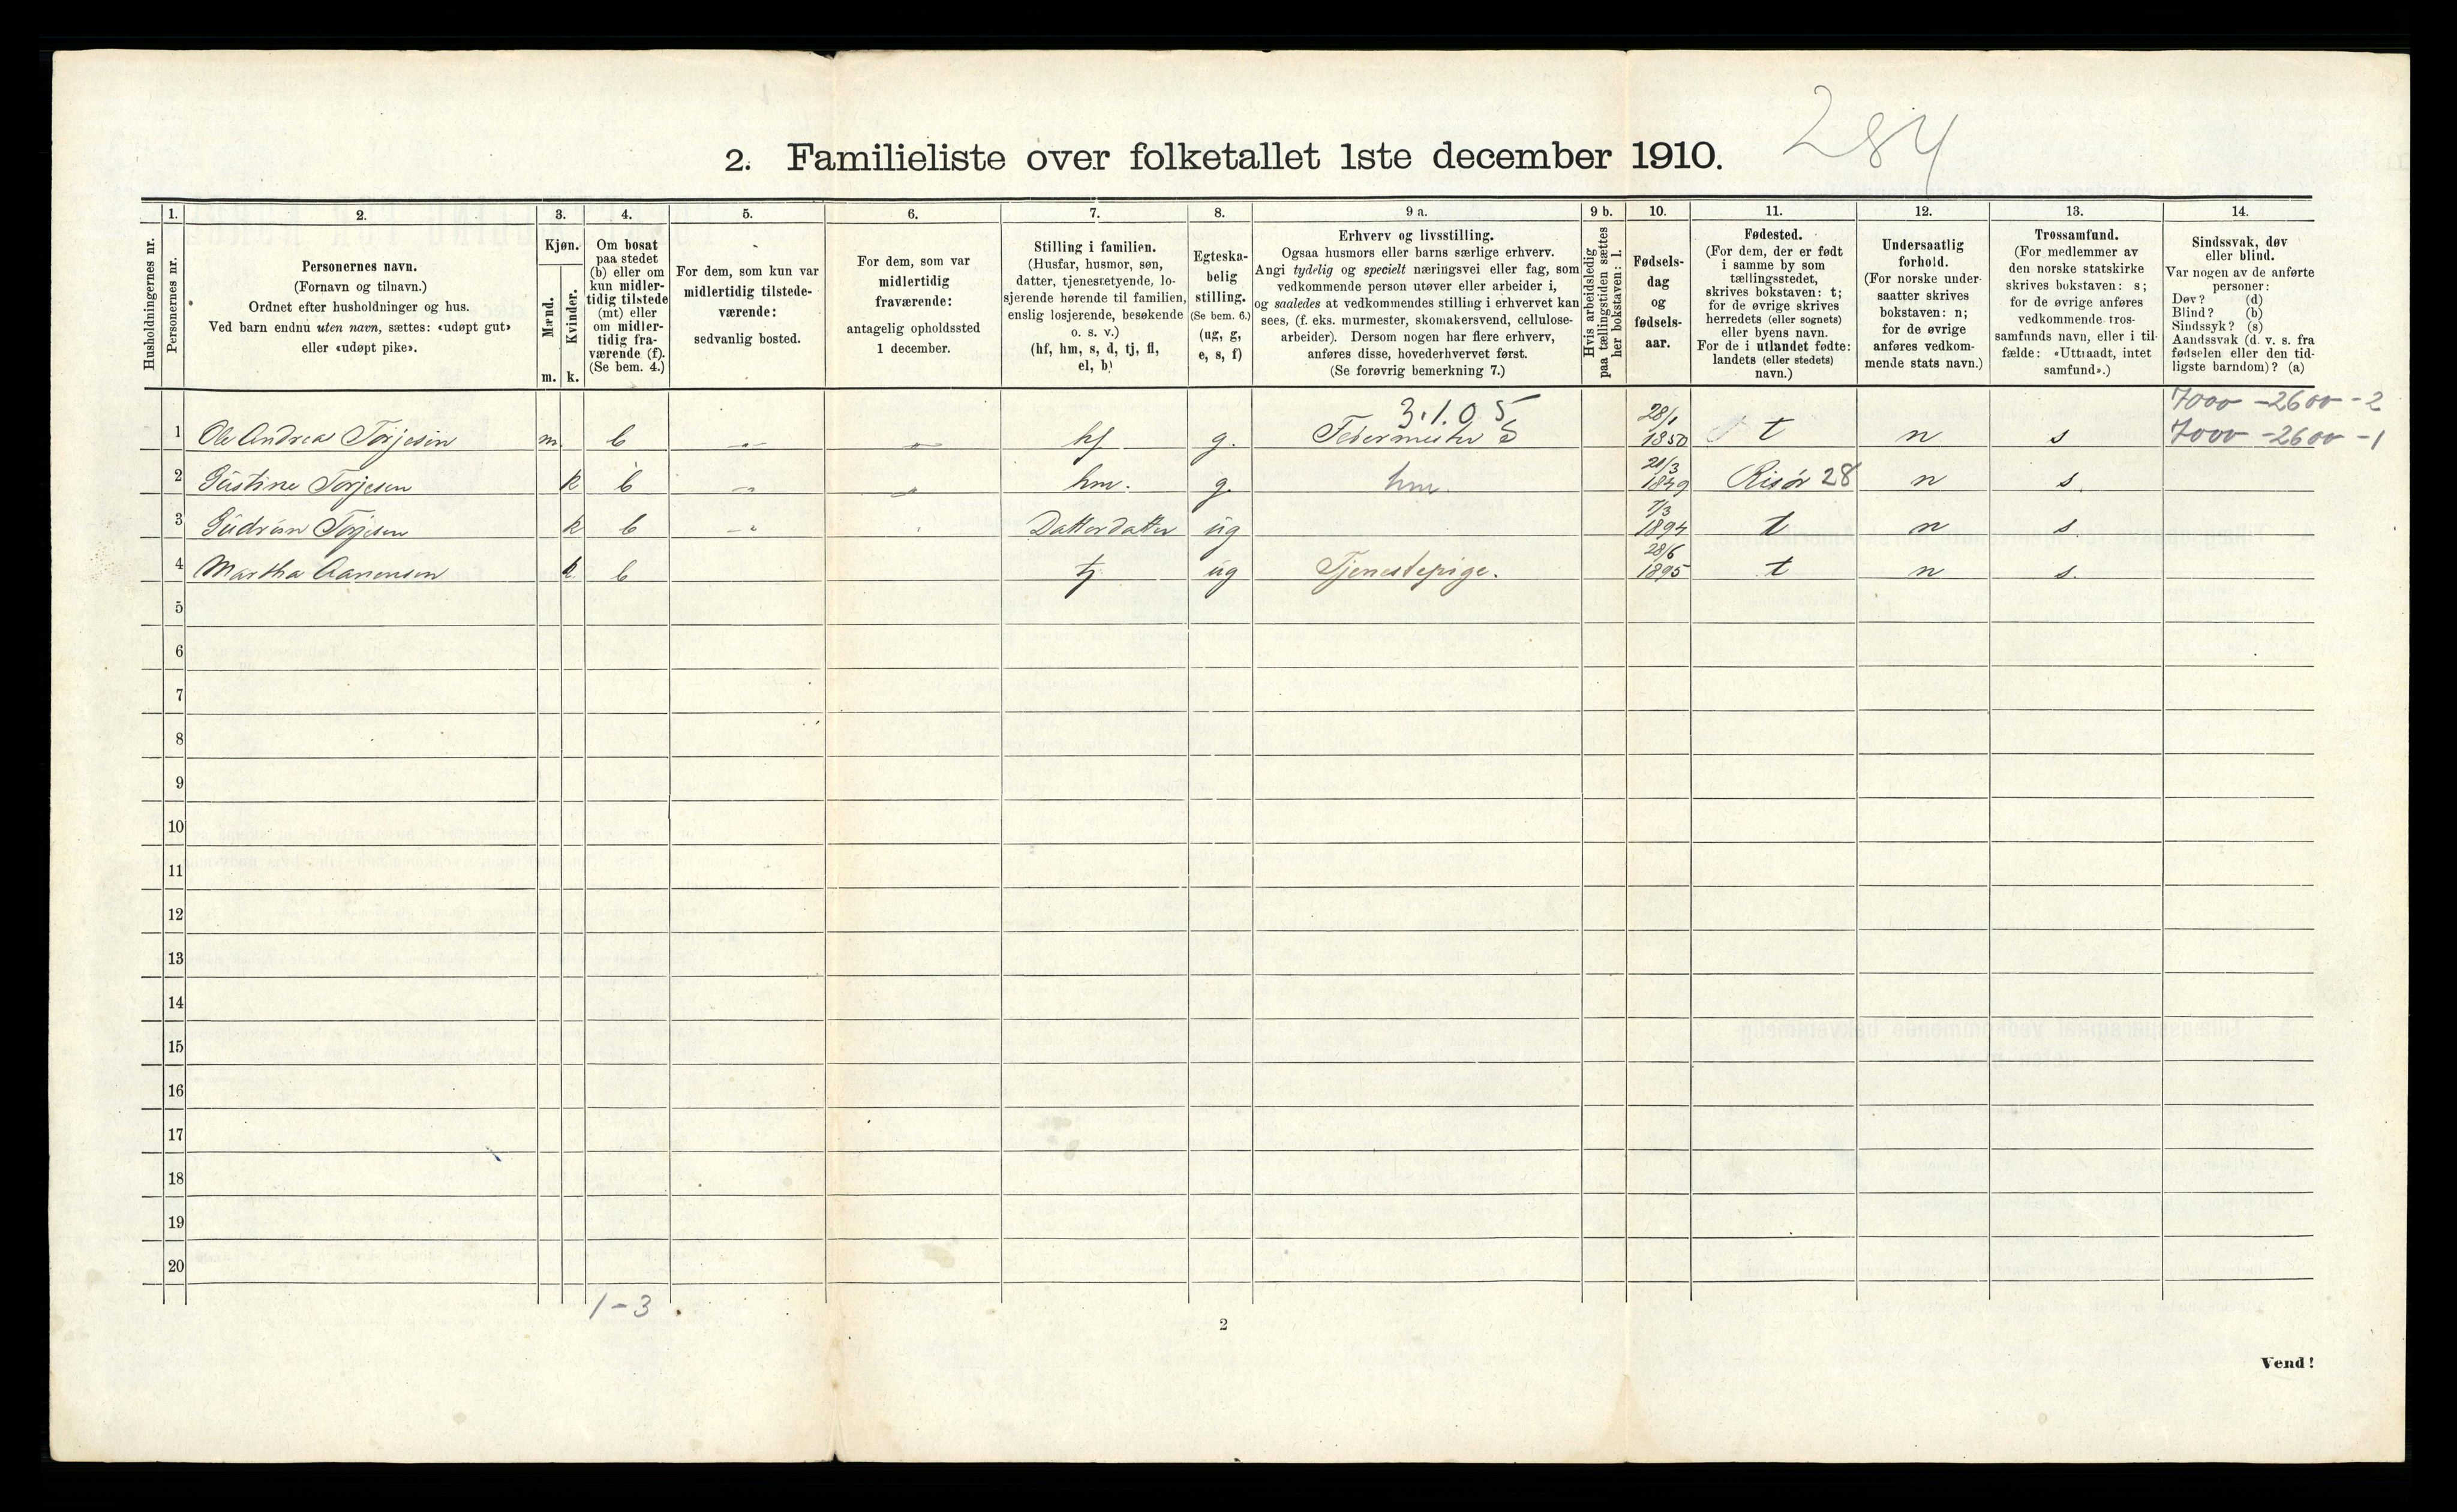 284
2. Familieliste over folketallet 1ste december 1910.
Husholdningernes nr.
1.
Personernes nr.
2.
Personernes navn.
(Fornavn og tilnavn.)
Ordnet efter husholdninger og hus.
Ved barn endnu uten navn, sættes: «udøpt gut»
eller «udøpt pike».
3.
Kjøn.
Mænd.
Kvinder.
m. k.
4.
Om bosat
paa stedet
(b) eller om
kun midler-
tidig tilstede
(mt) eller
om midler-
tidig fra-
værende (f).
(Se bem. 4.)
5.
For dem, som kun var
midlertidig tilstede-
værende:
sedvanlig bosted.
6.
For dem, som var
midlertidig
fraværende:
antagelig opholdssted
1 december.
7.
Stilling i familien.
(Husfar, husmor, søn,
datter, tjenestetyende, lo-
sjerende hørende til familien,
enslig losjerende, besøkende
o. s. v.)
(hf, hm, s, d, tj, fl,
el, b)
8.
Egteska-
belig
stilling.
(Se bem. 6.)
(ug, g,
e, s, f)
9 a.
Erhverv og livsstilling.
Ogsaa husmors eller barns særlige erhverv.
Angi tydelig og specielt næringsvei eller fag, som
vedkommende person utøver eller arbeider i,
og saaledes at vedkommendes stilling i erhvervet kan
sees, (f. eks. murmester, skomakersvend, cellulose-
arbeider). Dersom nogen har flere erhverv,
anføres disse, hovederhvervet først.
(Se forøvrig bemerkning 7.)
9 b.
Hvis arbeidsledig
paa tællingstiden sættes
her bokstaven: l.
10.
Fødsels-
dag
og
fødsels-
aar.
11.
Fødested.
(For dem, der er født
i samme by som
tællingsstedet,
skrives bokstaven: t;
for de øvrige skrives
herredets (eller sognets)
eller byens navn.
For de i utlandet fødte:
landets (eller stedets)
navn.)
12.
Undersaatlig
forhold.
(For norske under-
saatter skrives
bokstaven: n;
for de øvrige
anføres vedkom-
mende stats navn.)
13.
Trossamfund.
(For medlemmer av
den norske statskirke
skrives bokstaven: s;
for de øvrige anføres
vedkommende tros-
samfunds navn, eller i til-
fælde: «Uttraadt, intet
samfund».)
14.
Sindssvak, døv
eller blind.
Var nogen av de anførte
personer:
Døv? (d)
Blind? (b)
Sindssyk? (s)
Aandssvak (d. v. s. fra
fødselen eller den tid-
ligste barndom)? (a)
3.1.05 7000 - 2600 - 2
1 Ole Andreas Torjesen m. b hf g. 28/1 1850 t n s 7000 - 2600 - 1
2 Torjesen k b hm. g. hm. 21/3 1849 Risør 28 n s.
3 Gudrun Torjesen k b Datterdatter ug 7/3 1894 t n s.
4 Martha Aanensen k b tj ug Tjenestepige. 28/6 1895 t n s.
5
6
7
8
9
10
11
12
13
14
15
16
17
18
19
20
1 - 3
2
Vend!